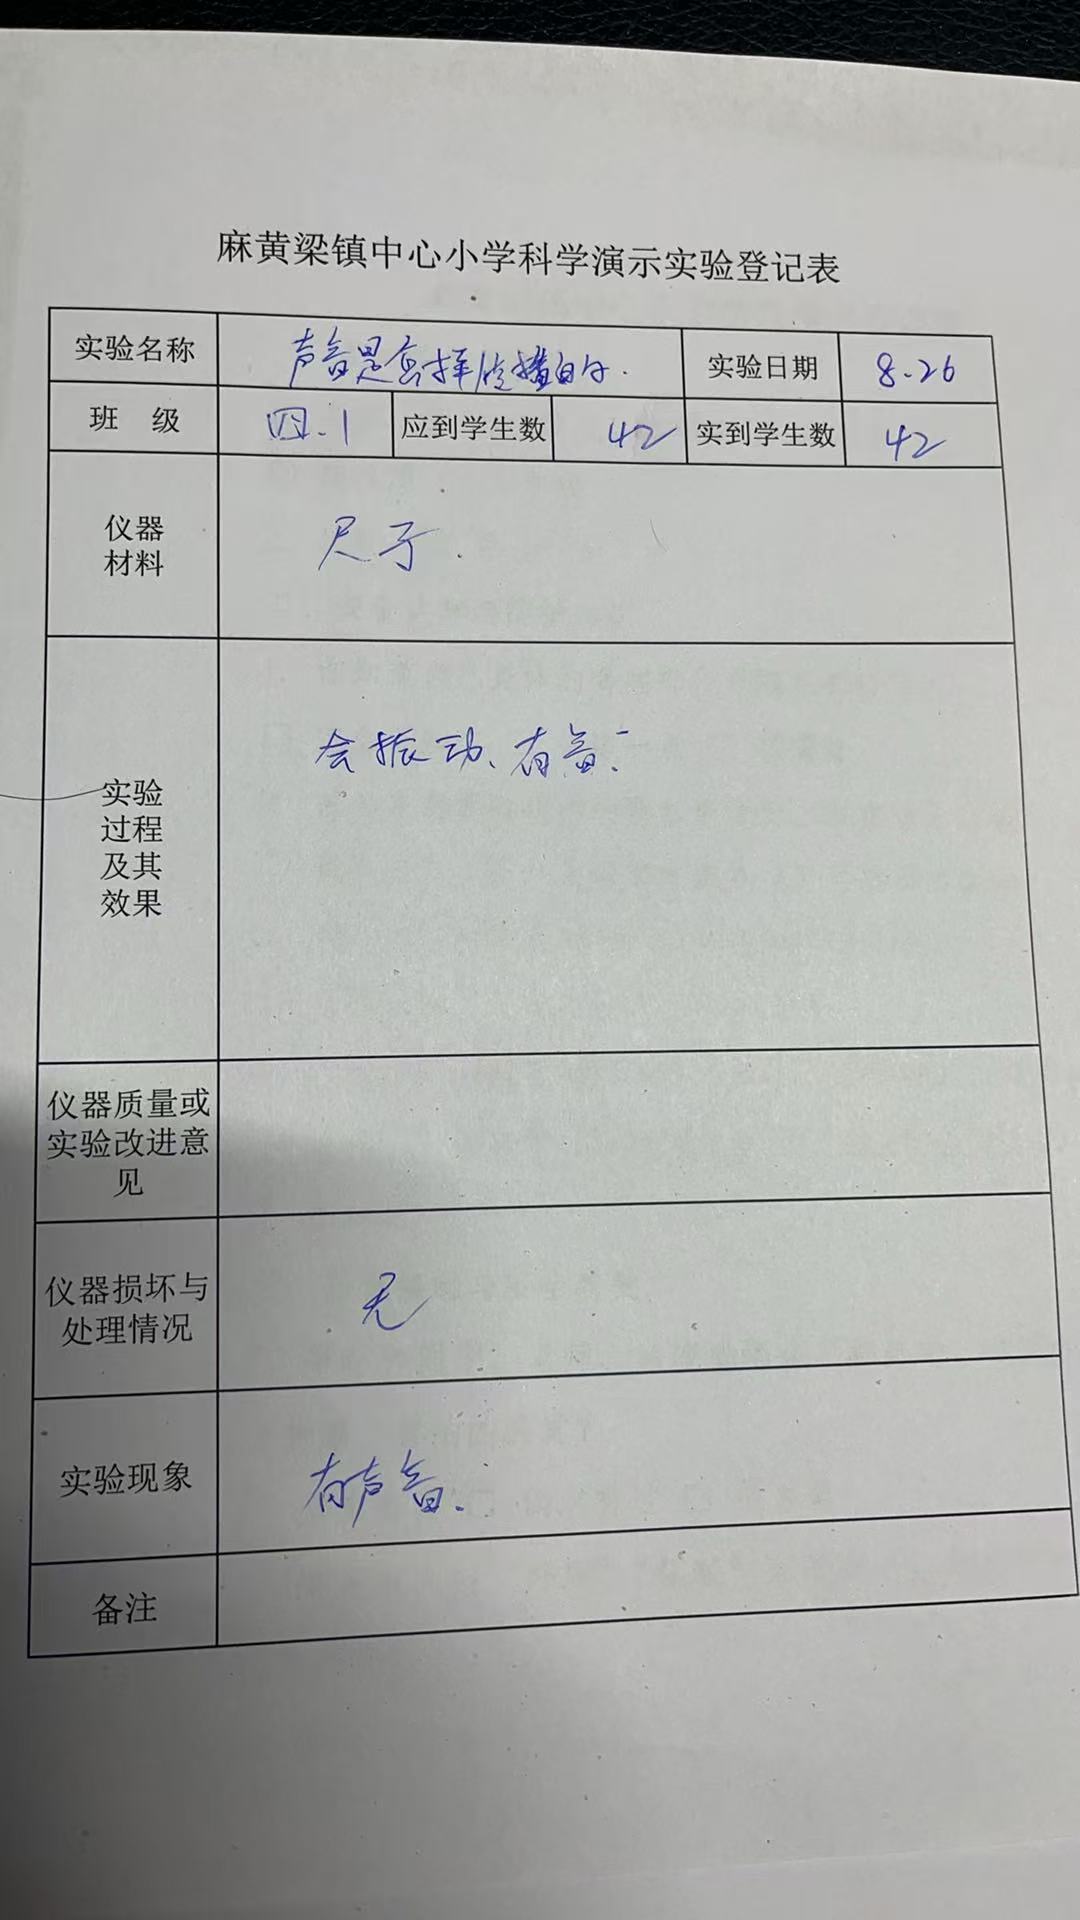 麻黄梁镇中心小学科学演示实验登记表
实验名称 声音是怎样传播的. 实验日期 8.26
班 级 四.1 应到学生数 42 实到学生数 42
仪器
材料
尺子.
实验
过程
及其
效果
会振动、有音.
仪器质量或
实验改进意
见
仪器损坏与
处理情况
无
实验现象 有声音.
备注